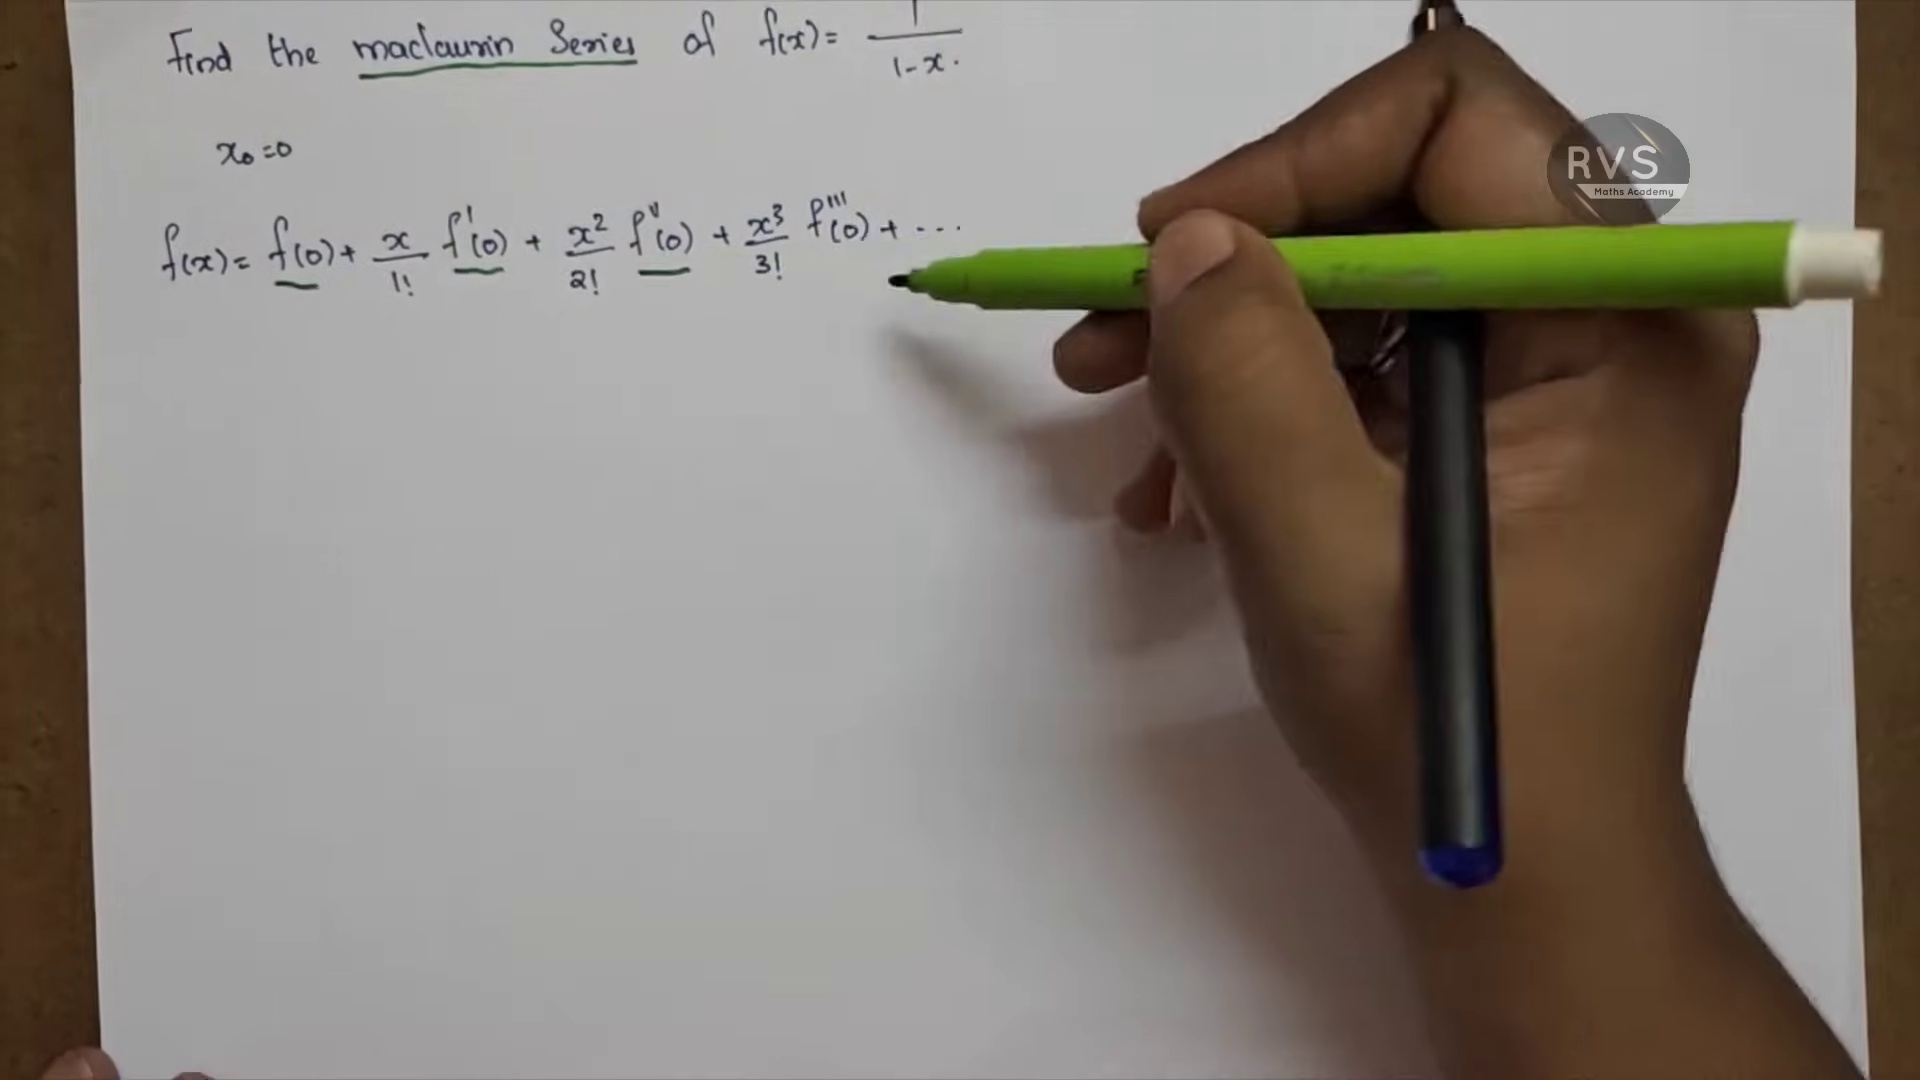 Find the maclaurin Series of f(x)= 1/1-x.
x₀=0
f(x)= f(0)+ x/1! f'(0) + x²/2! f''(0) + x³/3! f'''(0) + ...
RVS
Maths Academy